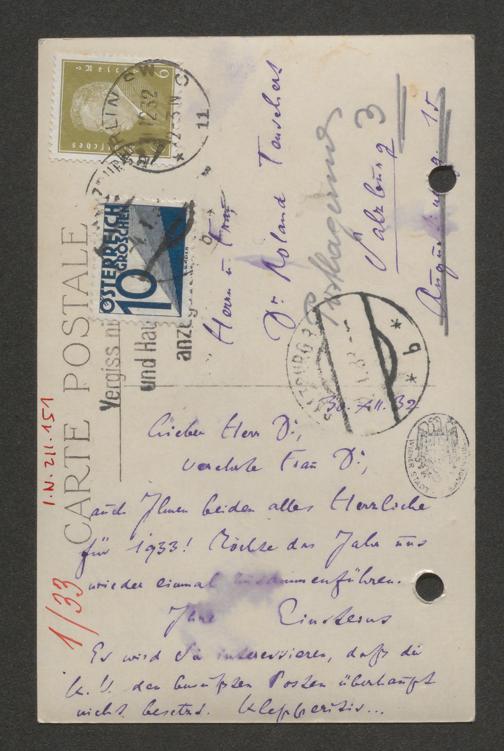 CARTE POSTALE
BERLIN SW
11
12.32
ÖSTERREICH
10
GROSCHEN
Vergiss ni
und Hau
anzeige
SALZBURG 2
* 6 *
Herrn u. Frau
Dr. Roland Tenschert
Salzburg
3
15
I.N. 211.151
1/33
30. XII. 32
Lieber Herr Dr.,
verehrte Frau Dr.,
auch Ihnen beiden alles Herzliche
für 1933! Möchte das Jahr uns
wieder einmal zusammenführen.
Ihre
Es wird Sie interessieren, dass die
K. U. den bewußten Posten überhaupt
nicht besetzt.